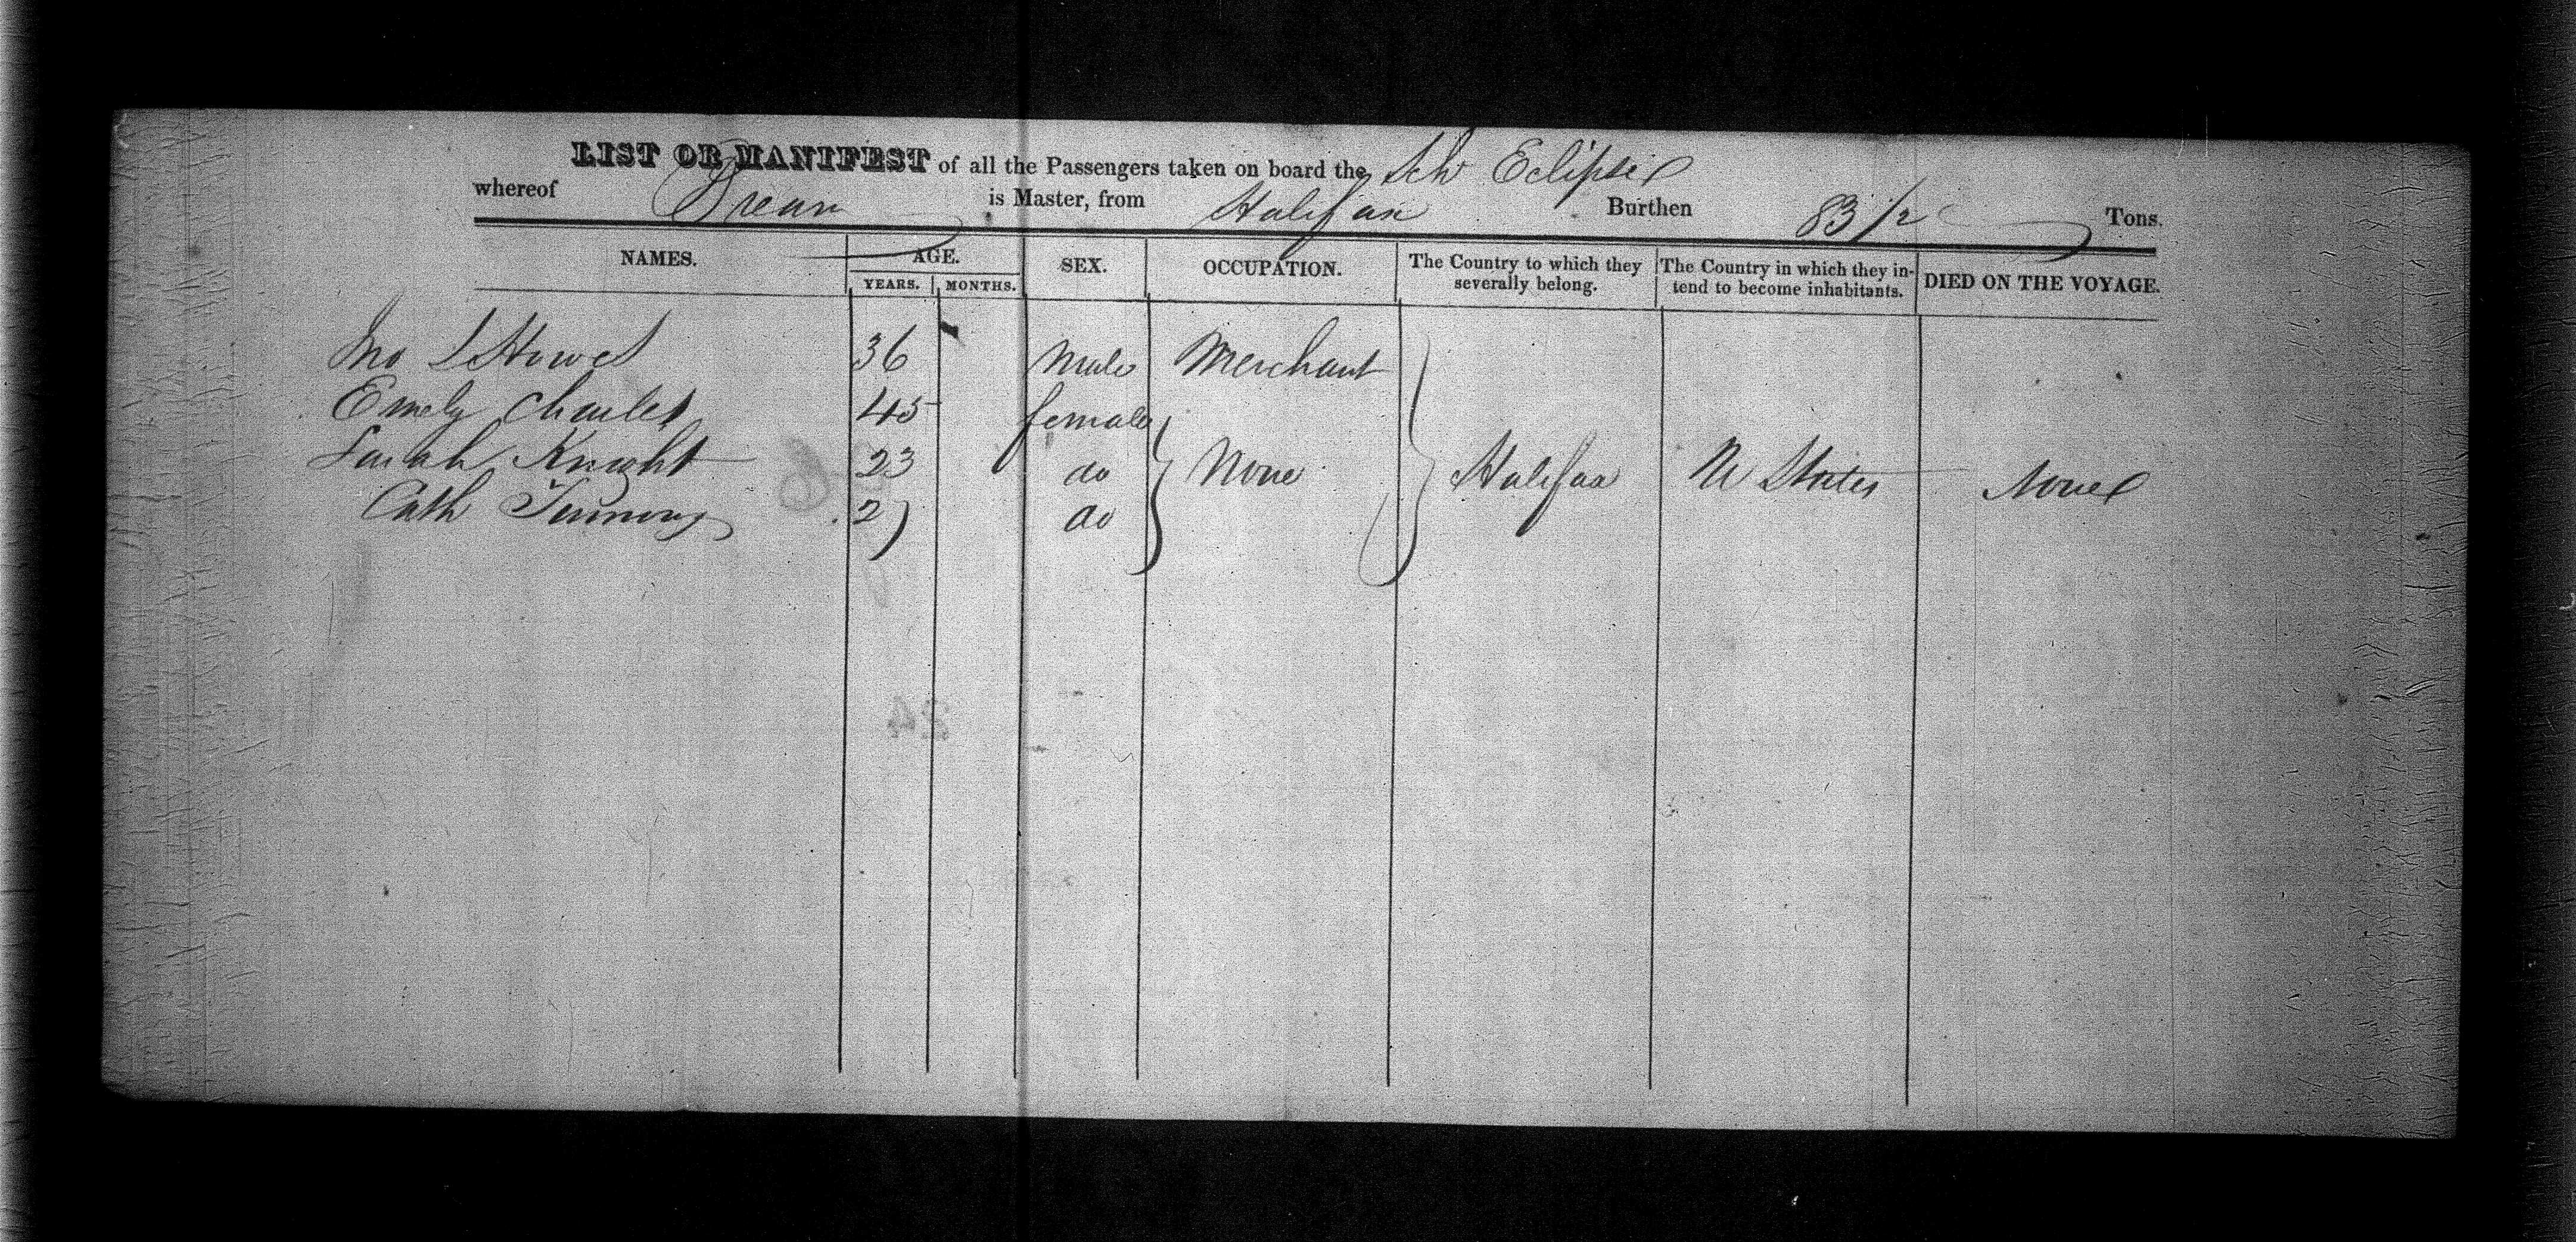 LIST OR MANIFEST of all the Passengers taken on board the Sch Eclipse
whereof is Master, from Halifax Burthen 83 1/2 Tons.
NAMES. AGE. SEX. OCCUPATION. The Country to which they severally belong. The Country in which they intend to become inhabitants. DIED ON THE VOYAGE.
YEARS. MONTHS.
Jno 36 Male Merchant
Emely Charles 45 female
Sarah Knight 23 do None Halifax U States None
Cath 27 do